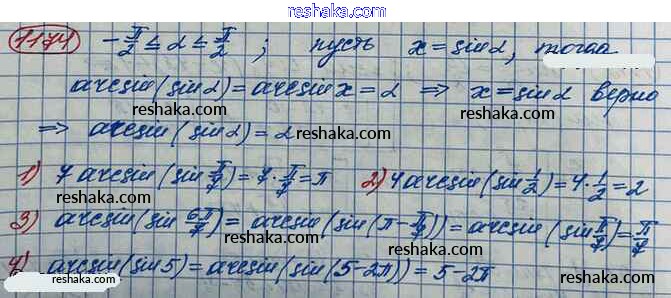 www.reshaka.com
1174 -π/2 ≤ α ≤ π/2 ; пусть x = sinα, тогда
arcsin(sinα) = arcsin x = α ⇒ x = sinα верно
reshaka.com reshaka.com
⇒ arcsin(sinα) = α
reshaka.com
1) 7 arcsin(sin π/7) = 7·π/7 = π 2) 4 arcsin(sin 1/2) = 4·1/2 = 2
reshaka.com reshaka.com
3) arcsin(sin 6π/7) = arcsin(sin(π - π/7)) = arcsin(sin π/7) = π/7
reshaka.com reshaka.com
4) arcsin(sin 5) = arcsin(sin(5-2π)) = 5-2π
reshaka.com